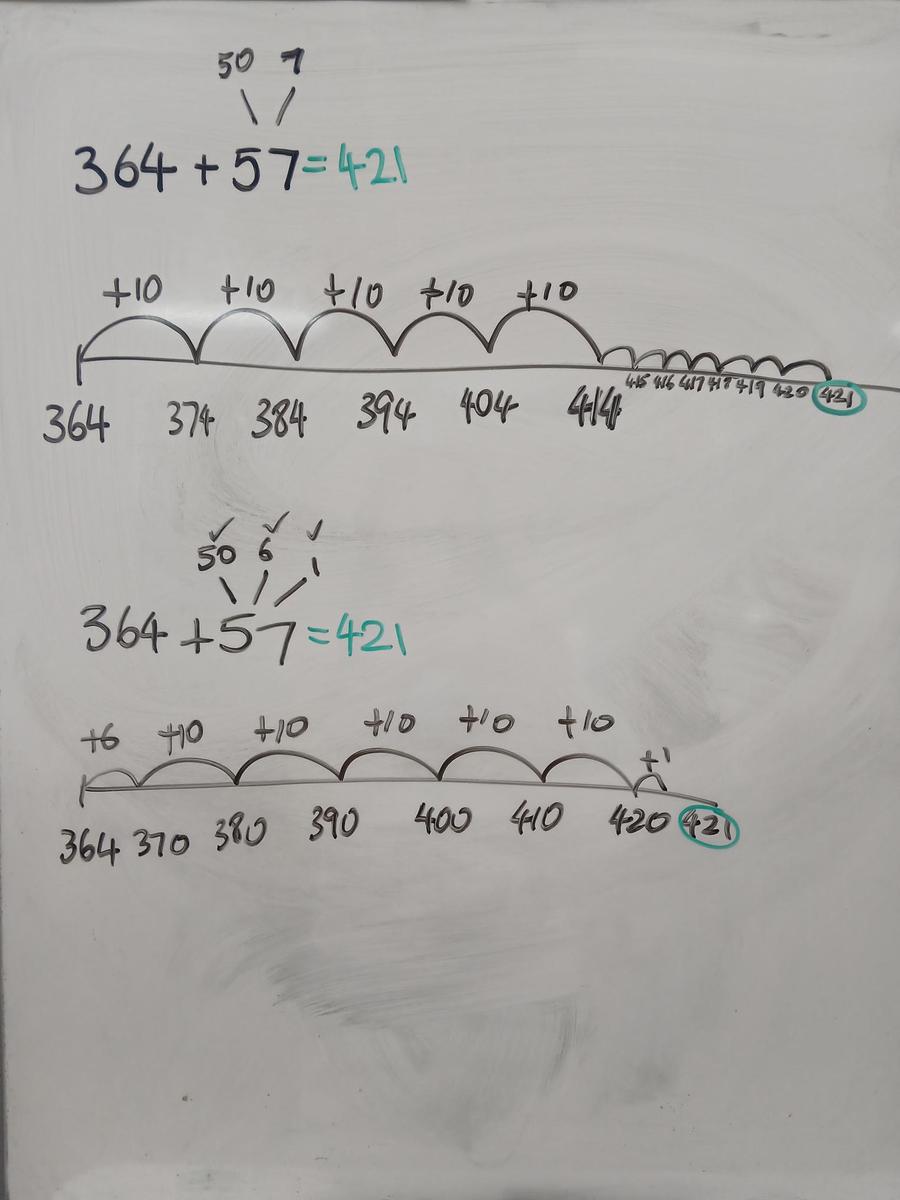 50 7
364 + 57 = 421
+10 +10 +10 +10 +10
364 374 384 394 404 414 415 416 417 418 419 420 421
50 6 1
364 + 57 = 421
+6 +10 +10 +10 +10 +10 +1
364 370 380 390 400 410 420 421